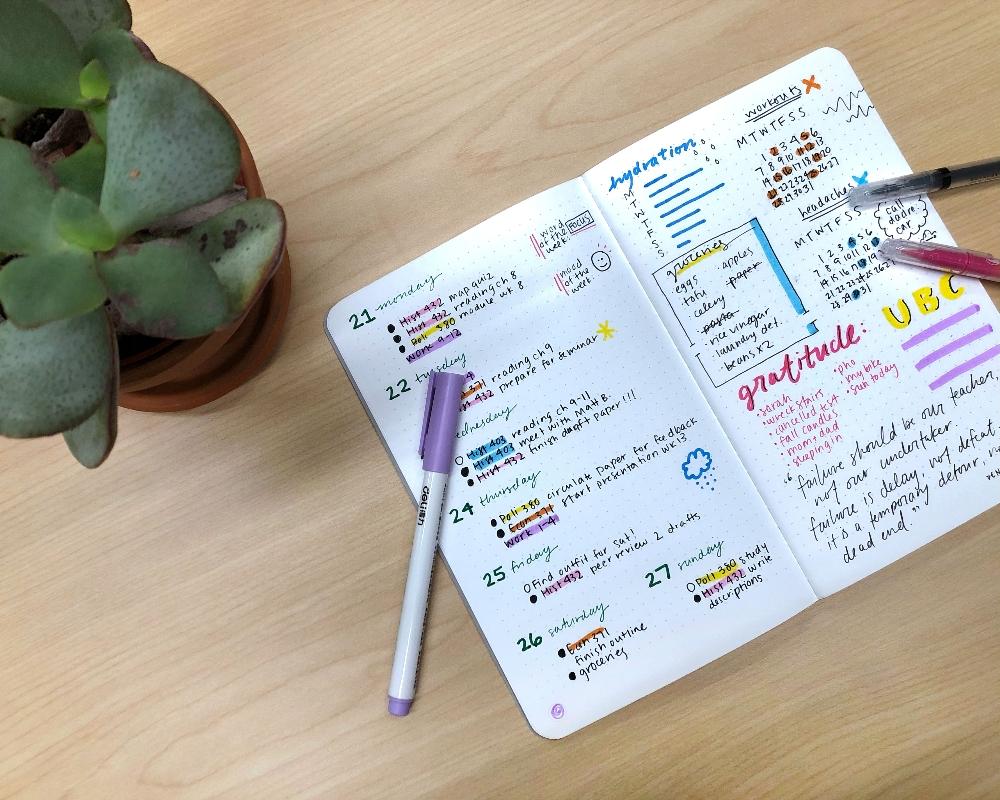 word
of the FOCUS
week:
mood
of the
week:
21 monday
Hist 432 map quiz
Hist 432 reading ch 8
Poli 380 module wk 8
Work 9-12
22 tuesday
371 reading ch 9
432 prepare for seminar
ednesday
Hist 403 reading ch 9-11
Hist 403 meet with Matt B.
Hist 432 finish draft paper!!!
24 thursday
Poli 380 circulate paper for feedback
Econ 371 start presentation wk 13
Work 1-4
25 friday
Find outfit for Sat!
Hist 432 peer review 2 drafts
26 saturday
Econ 371
finish outline
groceries
27 sunday
Poli 380 study
Hist 432 write
descriptions
hydration
M
T
W
T
F
S
S
groceries
eggs
tofu
celery
pasta
rice vinegar
laundry det.
beans x2
apples
paper
workouts X
M T W T F S S
1 2 3 4 5 6
7 8 9 10 11 12 13
14 15 16 17 18 19 20
21 22 23 24 25 26 27
28 29 30 31
headaches X
M T W T F S S
1 2 3 4 5 6
7 8 9 10 11 12
14 15 16 17 18 19
21 22 23 24 25
28 29 30 31
call
car
UBC
gratitude:
sarah
wreck stairs
cancelled test
fall candles
mom + dad
sleeping in
pho
my bike
sun today
"failure should be our teacher,
not our undertaker.
failure is delay, not defeat.
it's a temporary detour, not
dead end."
delfish